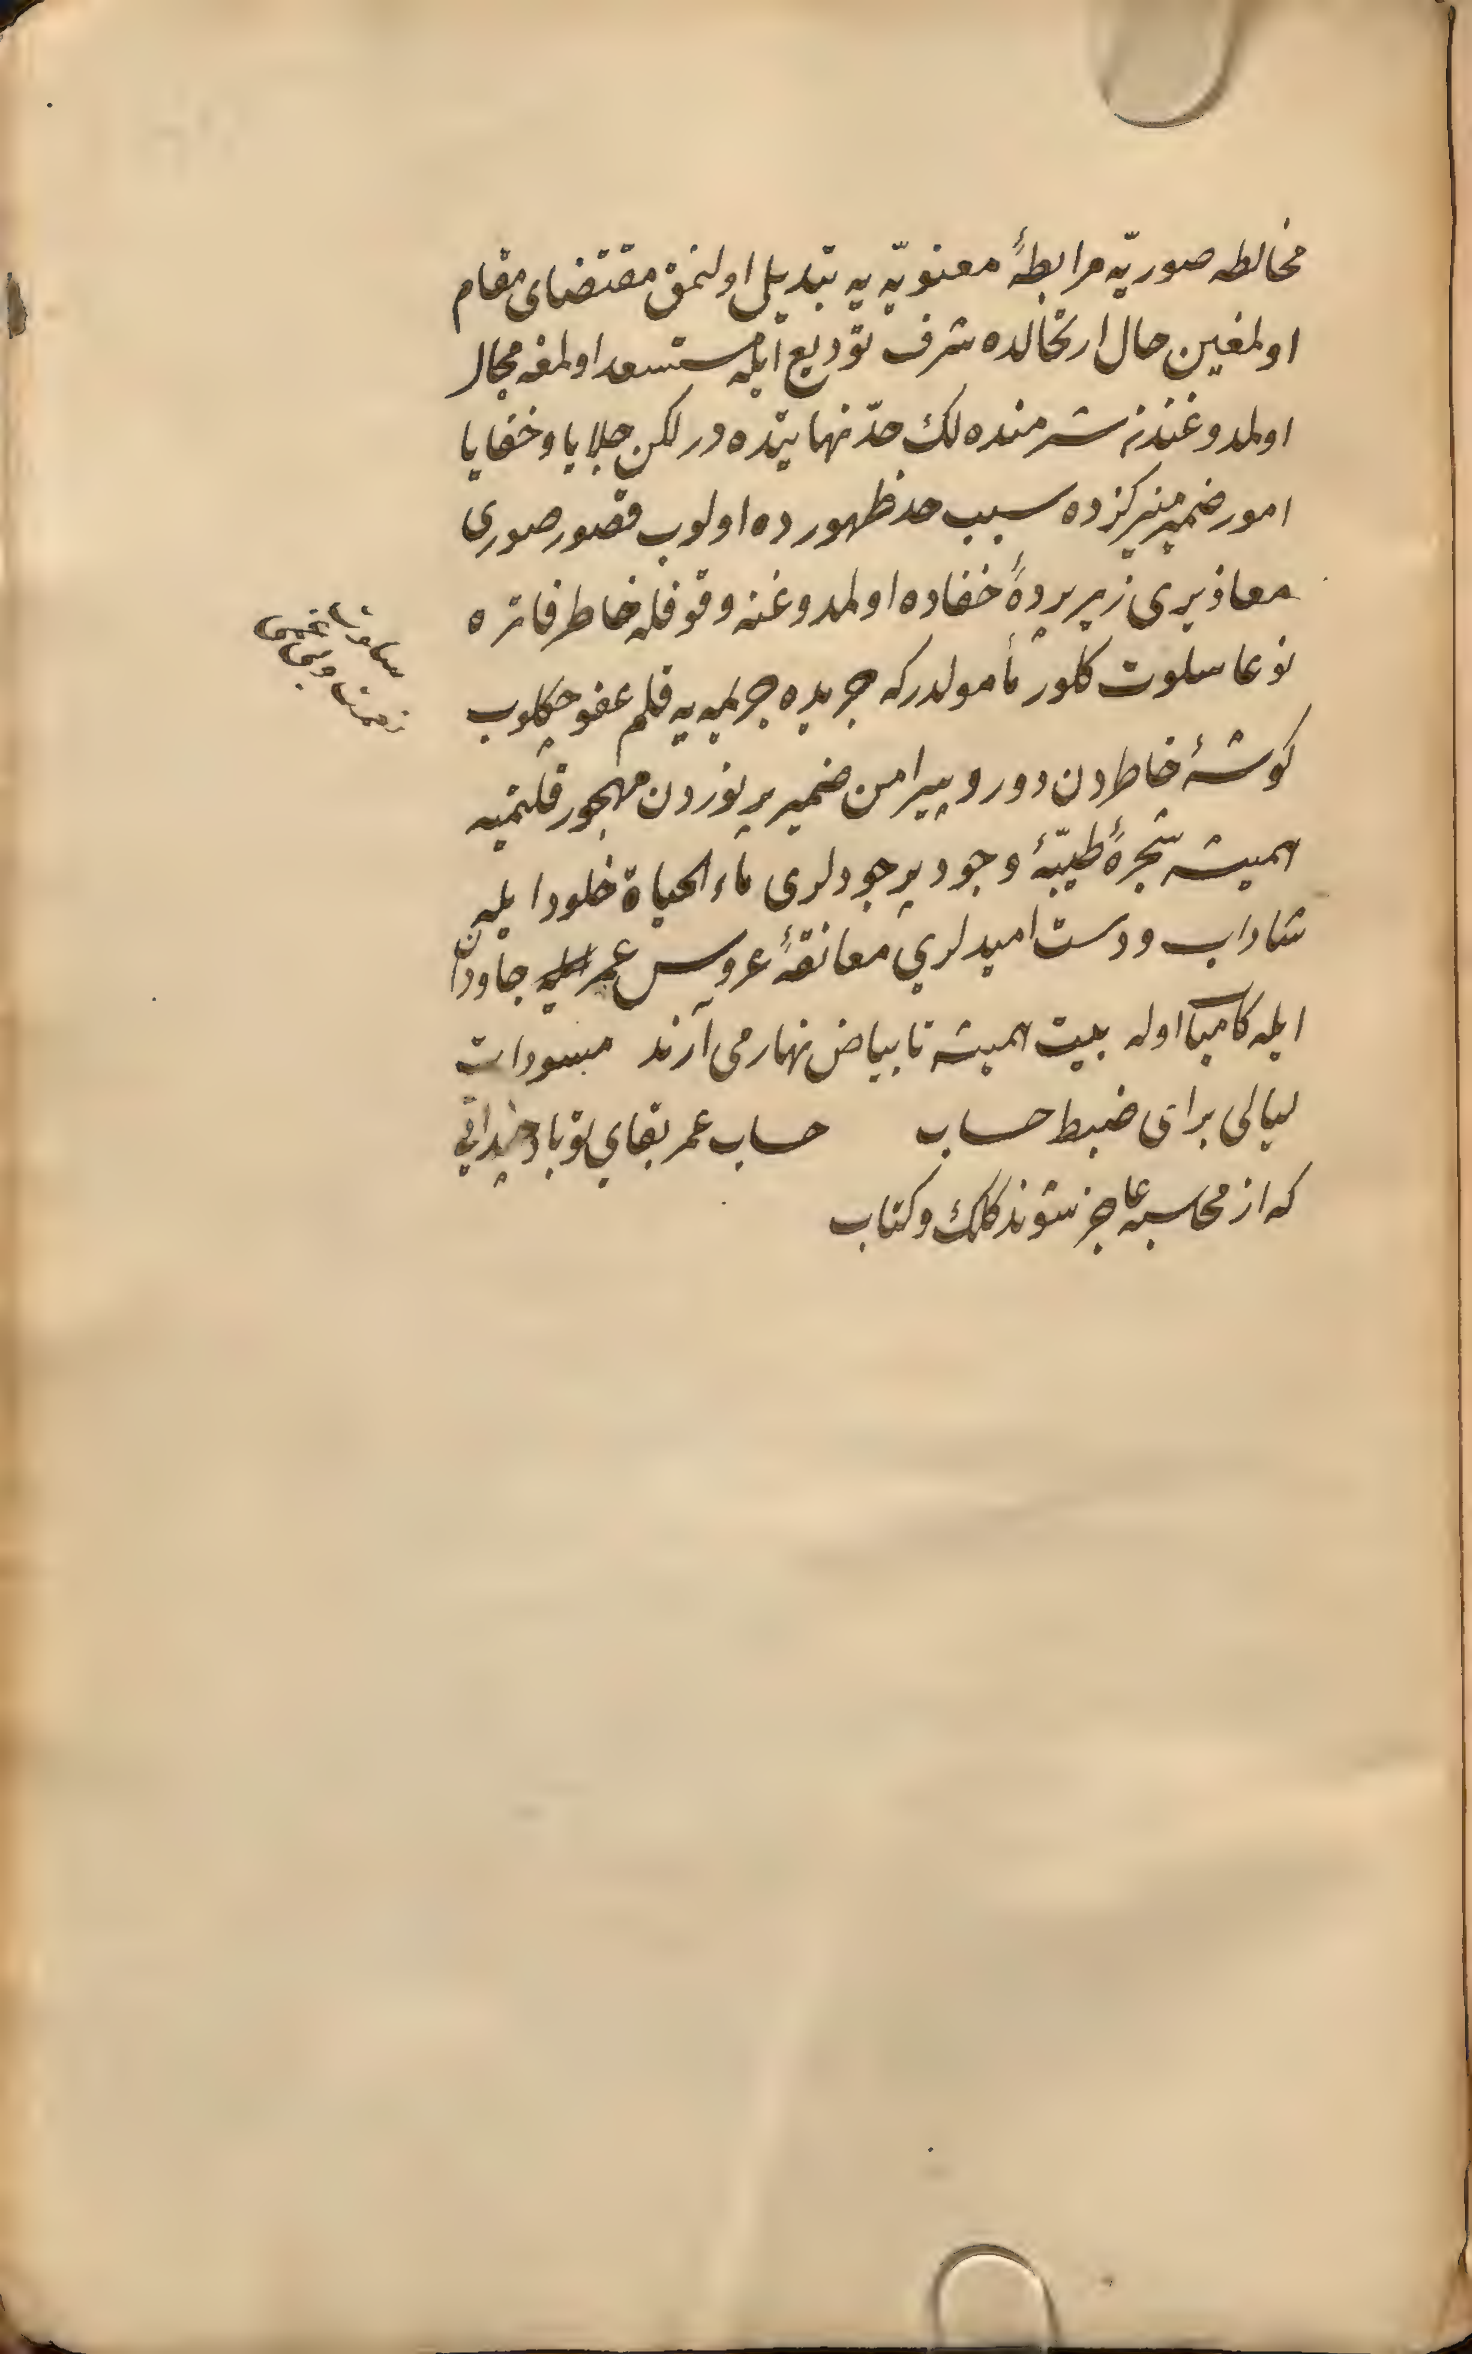 مخالطه صوریّه مرابطۀ معنویّه یه تبدیل اولنمق مقتضای مقام
اولمغین حال ارتحالده شرف تودیع ایله مستسعد اولمغه مجال
اولمدوغندن شرمنده لك حدّ نهایتده در لکن جلایا و خفایا
امور ضمیر منیرکزده سبب حد ظهورده اولوب قصور صوری
معاذیری زیر پردۀ خفاده اولمدوغنه وقوفله خاطر فاتره
نوعا سلوت کلور مأمولدرکه جریده جریمه یه قلم عفو چکلوب
کوشۀ خاطردن دور و پیرامن ضمیر پر نوردن مهجور قلنمیه
همیشه شجرۀ طیّبۀ وجود پر جودلری ماء الحیاة خلود ایله
شاداب و دست امیدلری معانقۀ عروس عمر جاودان
ایله کامیاب اوله بیت همیشه تا بیاض نهار می آرند مسودات
لیالی برای ضبط حساب حساب عمر بقای تو باد چندانی
که از محاسبه عاجز شوند کلك و کتاب